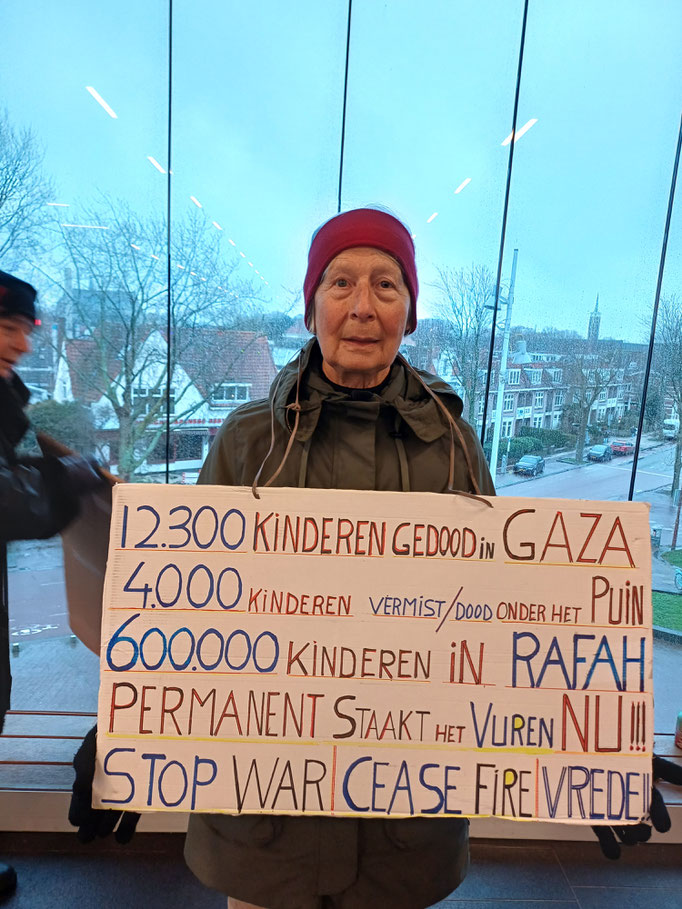 12.300 KINDEREN GEDOOD IN GAZA
4.000 KINDEREN VERMIST/DOOD ONDER HET PUIN
600.000 KINDEREN IN RAFAH
PERMANENT STAAKT HET VUREN NU!!!
STOP WAR | CEASE FIRE | VREDE!!